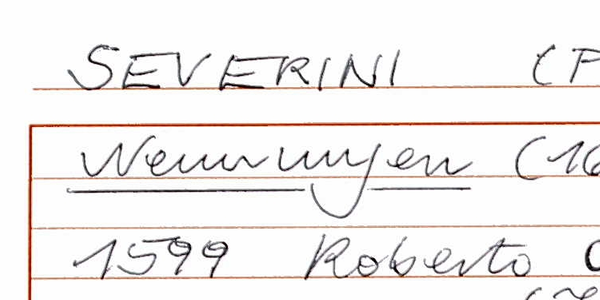 SEVERINI (P
Nennungen (16
1599 Roberto